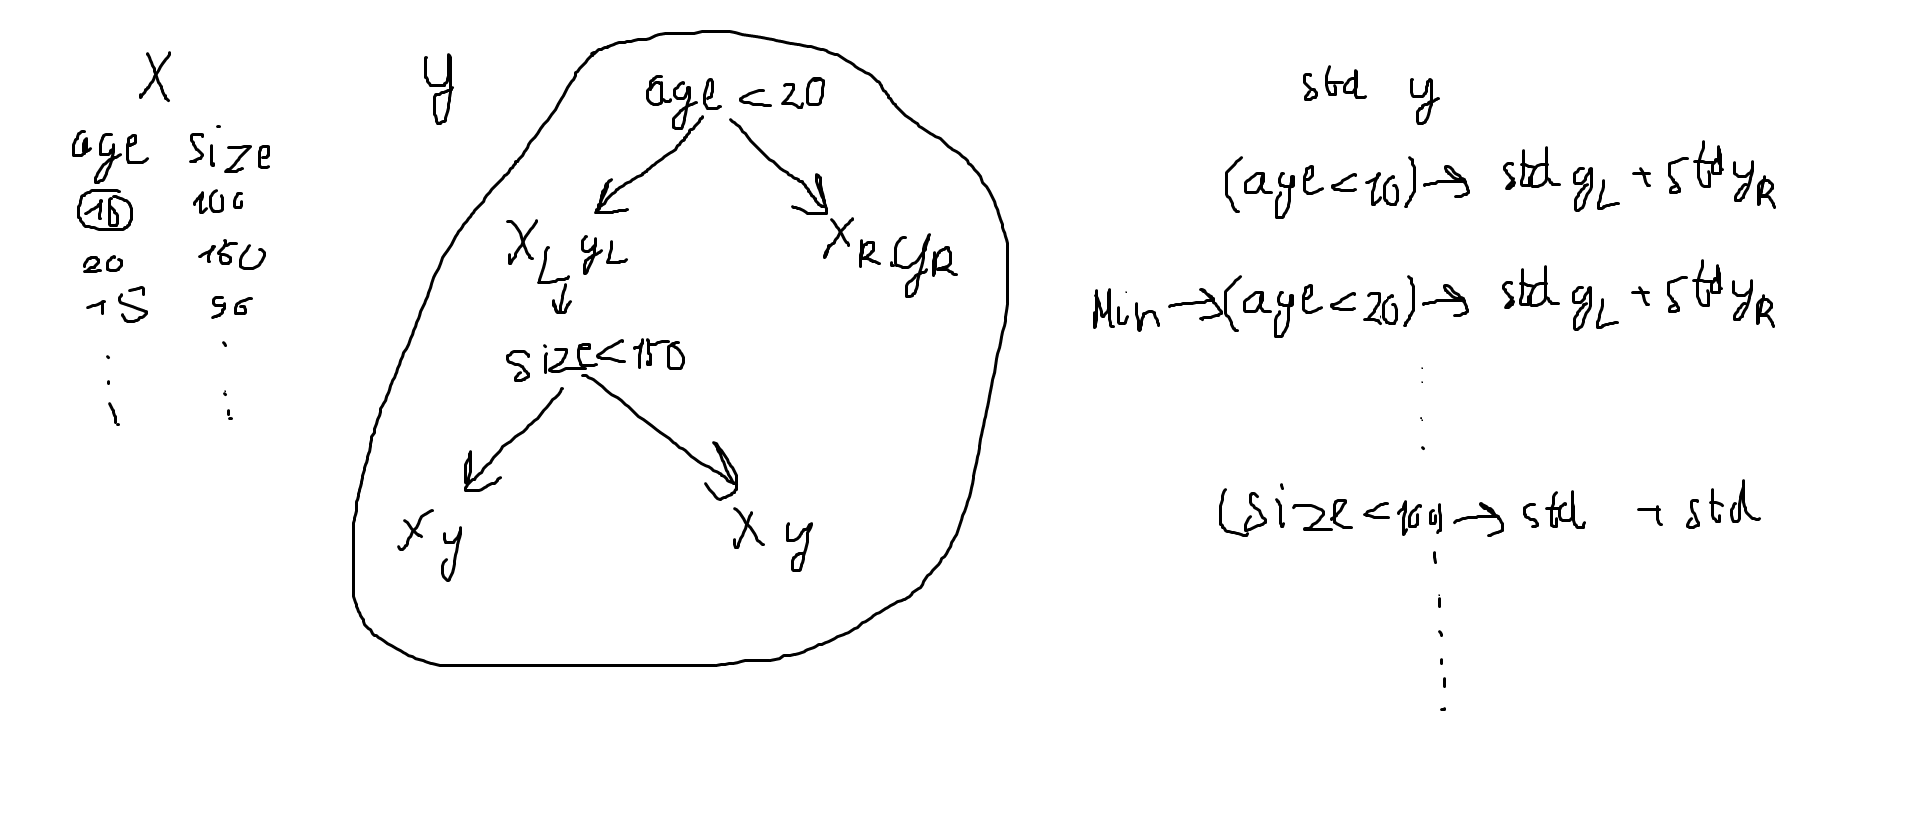 X
age size
10 100
20 150
15 90
y
age < 20
XL yL
XR yR
size < 150
X y
X y
std y
(age < 10) → std yL + std yR
Min → (age < 20) → std yL + std yR
(size < 100) → std + std